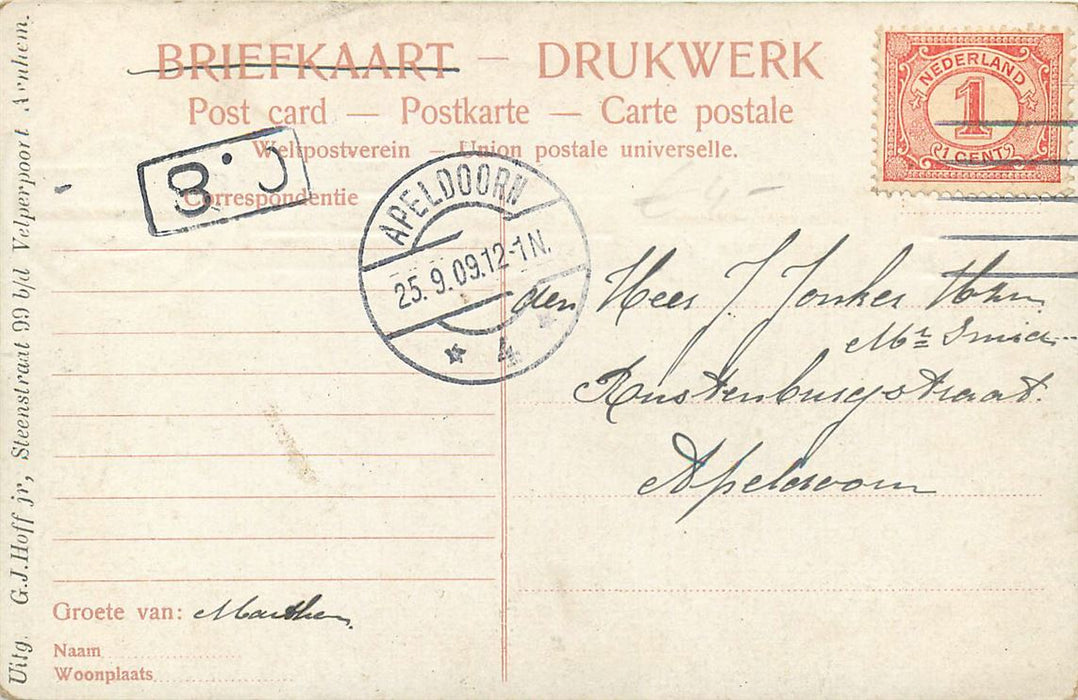 BRIEFKAART — DRUKWERK
Post card — Postkarte — Carte postale
Weltpostverein — Union postale universelle.
Correspondentie
NEDERLAND
1
1 CENT
8.
APELDOORN
25.9.09.12-1N.
4
den Heer J Jonker
Mr
Rustenburgstraat.
Apeldoorn
Groete van: Marthen
Naam
Woonplaats
Uitg. G.J.Hoff jr, Steenstraat 99 b/d Velperpoort Arnhem.